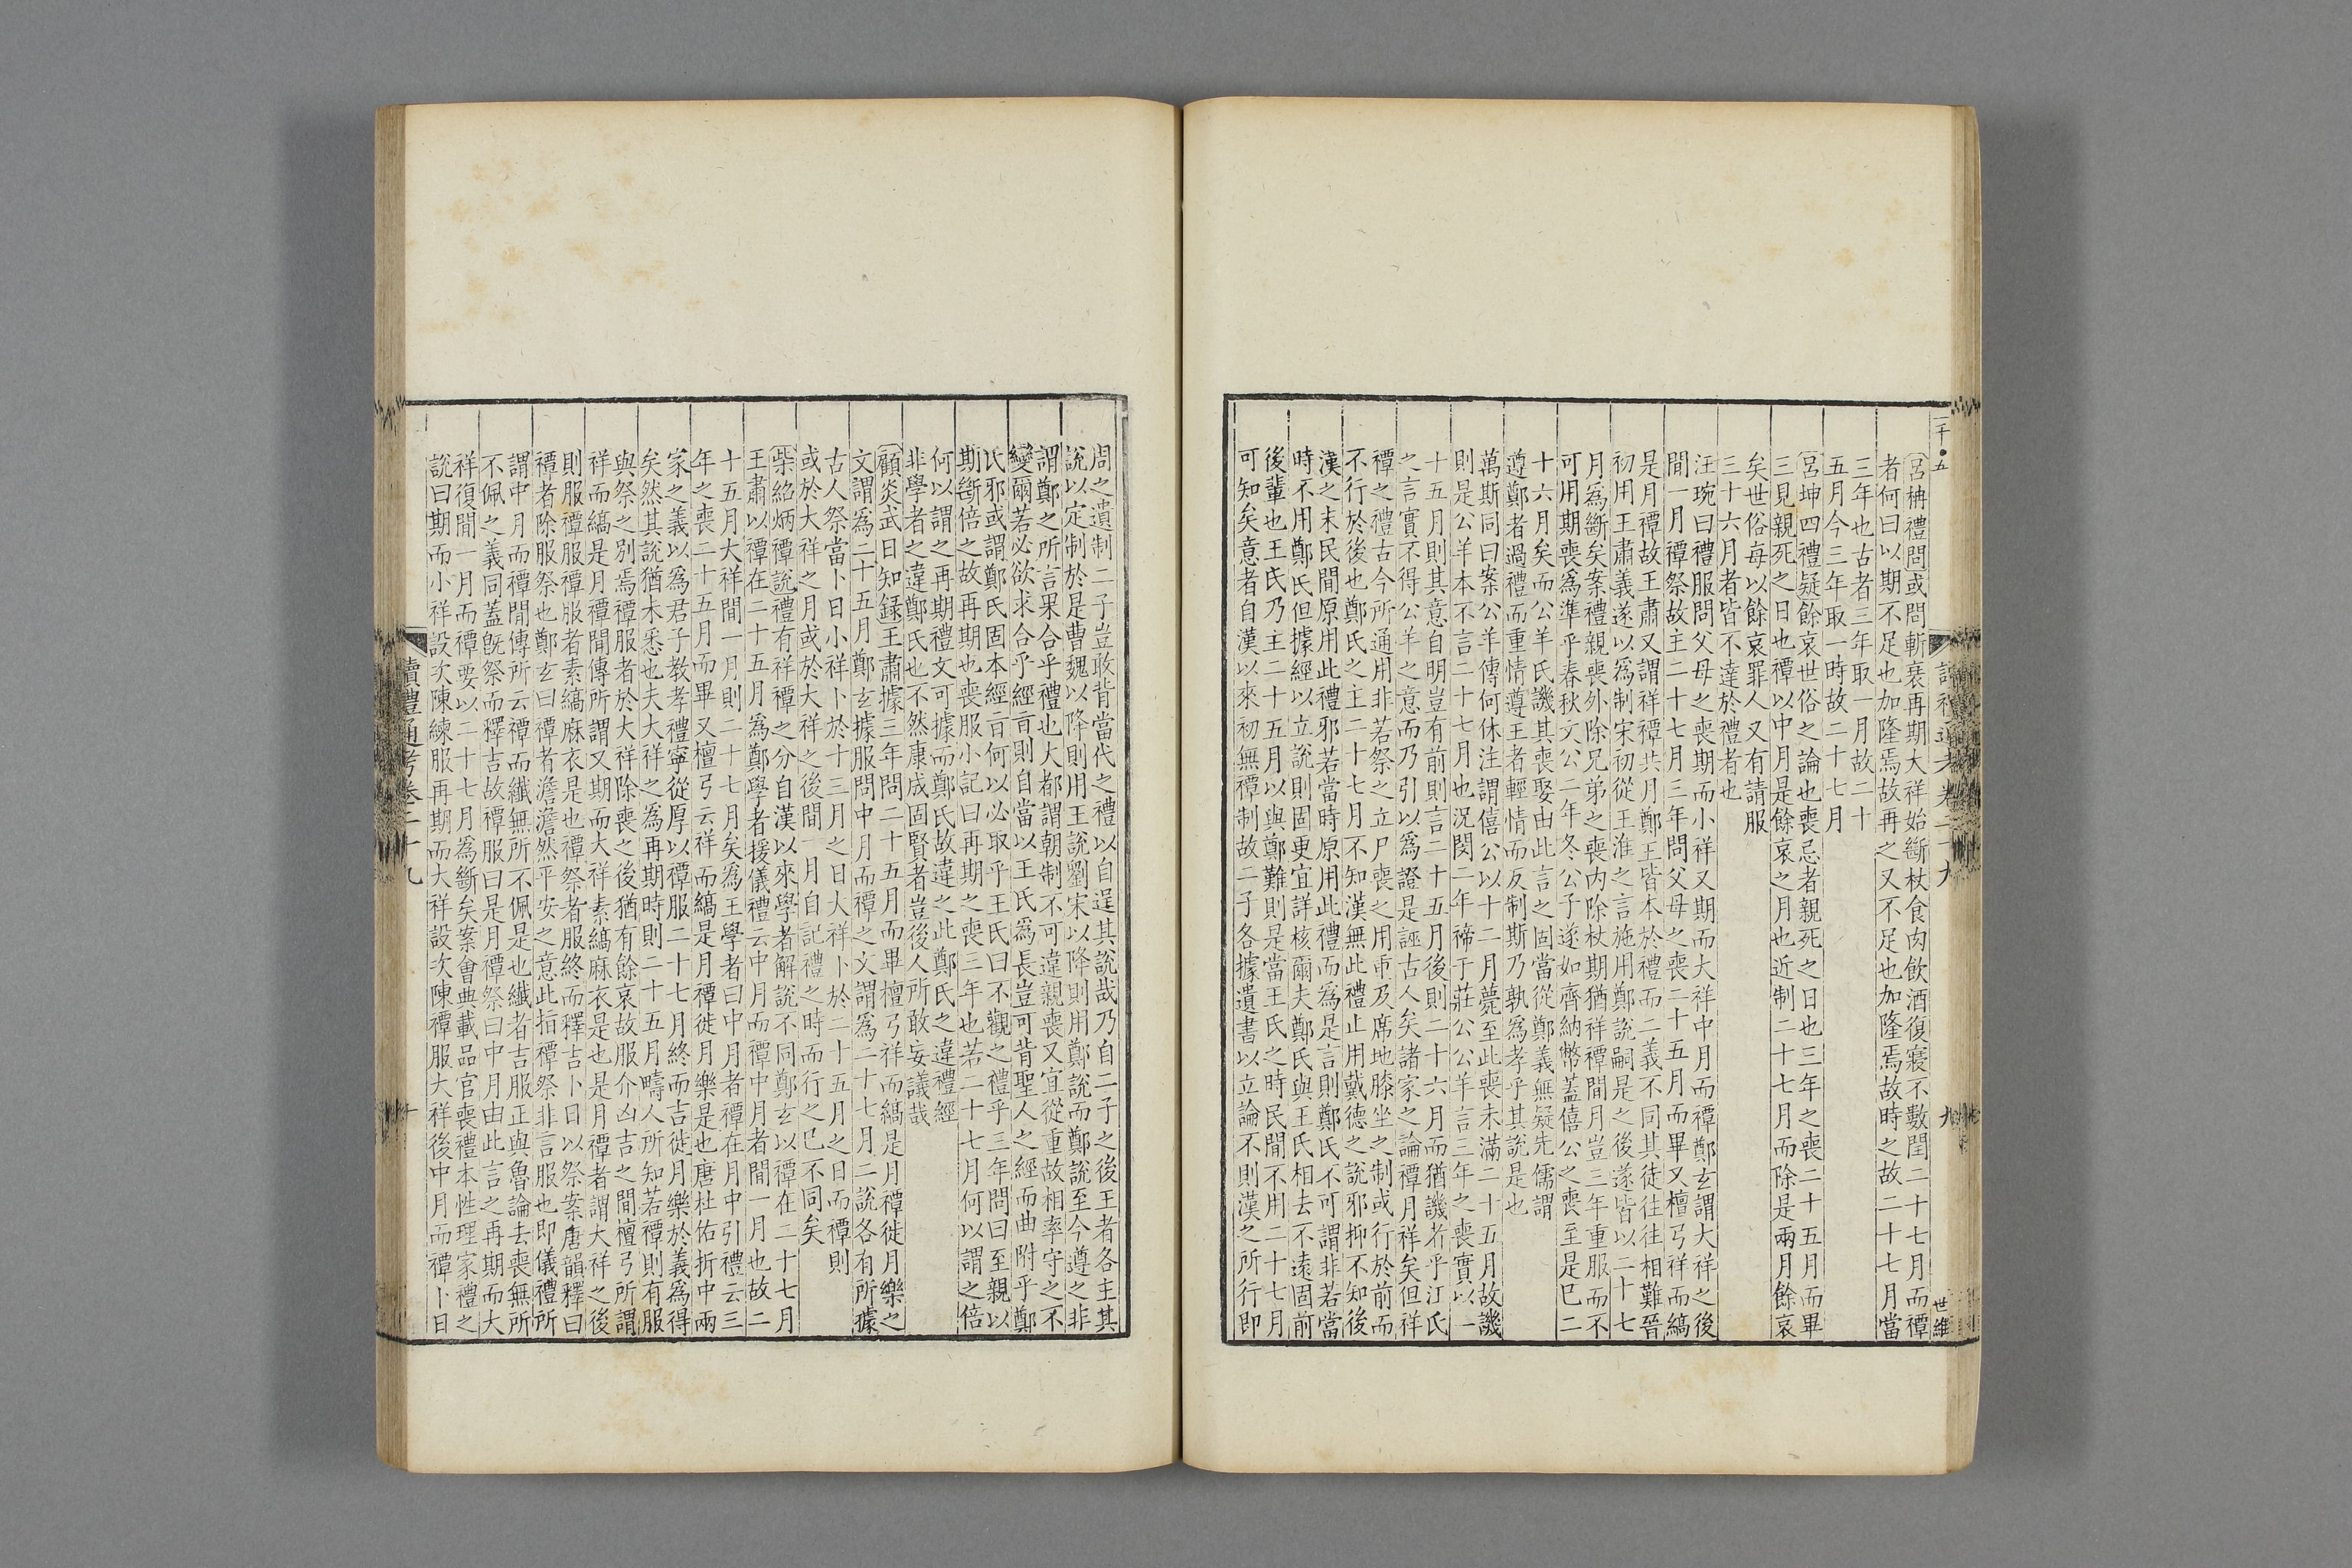 呂柟禮問或問斬衰再期大祥始斷杖食肉飲酒復寢不數閏二十七月而禫
者何曰以期不足也加隆焉故再之又不足也加隆焉故時之故二十七月當
三年也古者三年取一月故二十
五月今三年取一時故二十七月
呂坤四禮疑餘哀世俗之論也喪忌者親死之日也三年之喪二十五月而畢
三見親死之日也禫以中月是餘哀之月也近制二十七月而除是兩月餘哀
矣世俗每以餘哀罪人又有請服
三十六月者皆不達於禮者也
汪琬曰禮服問父母之喪期而小祥又期而大祥中月而禫鄭玄謂大祥之後
間一月禫祭故主二十七月三年問父母之喪二十五月而畢又檀弓祥而縞
是月禫故王肅又謂祥禫共月鄭王皆本於禮而二義不同其徒往往相難晉
初用王肅義遂以爲制宋初從王淮之言施用鄭說嗣是之後遂皆以二十七
月爲斷矣案禮親喪外除兄弟之喪內除杖期猶祥禫間月豈三年重服而不
可用期喪爲準乎春秋文公二年冬公子遂如齊納幣蓋僖公之喪至是已二
十六月矣而公羊氏譏其喪娶由此言之固當從鄭義無疑先儒謂
遵鄭者過禮而重情遵王者輕情而反制斯乃孰爲孝乎其說是也
萬斯同曰案公羊傳何休注謂僖公以十二月薨至此喪未滿二十五月故譏
則是公羊本不言二十七月也況閔二年禘于莊公公羊言三年之喪實以二
十五月則其意自明豈有前則言二十五月後則二十六月而猶譏者乎汪氏
之言實不得公羊之意而乃引以爲證是誣古人矣諸家之論禫月祥矣但祥
禫之禮古今所通用非若祭之立尸喪之用重及席地膝坐之制或行於前而
不行於後也鄭氏之主二十七月不知漢無此禮止用戴德之說邪抑不知後
漢之末民間原用此禮邪若當時原用此禮而爲是言則鄭氏不可謂非若當
時不用鄭氏但據經以立說則固更宜詳核爾夫鄭氏與王氏相去不遠固前
後輩也王氏乃主二十五月以與鄭難則是當王氏之時民間不用二十七月
可知矣意者自漢以來初無禫制故二子各據遺書以立論不則漢之所行即
周之遺制二子豈敢背當代之禮以自逞其說哉乃自二子之後王者各主其
說以定制於是曹魏以降則用王說劉宋以降則用鄭說而鄭說至今遵之非
謂鄭之所言果合乎禮也大都謂朝制不可違親喪又宜從重故相率守之不
變爾若必欲求合乎經言則自當以王氏爲長豈可背聖人之經而曲附乎鄭
氏邪或謂鄭氏固本經言何以必取乎王氏曰不觀之禮乎三年問曰至親以
期斷倍之故再期也喪服小記曰再期之喪三年也若二十七月何以謂之倍
何以謂之再期禮文可據而鄭氏故違之此鄭氏之違禮經
非學者之違鄭氏也不然康成固賢者豈後人所敢妄議哉
顧炎武日知錄王肅據三年問二十五月而畢檀弓祥而縞是月禫徙月樂之
文謂爲二十五月鄭玄據服問中月而禫之文謂爲二十七月二說各有所據
古人祭當卜日小祥卜於十三月之日大祥卜於二十五月之日而禫則
或於大祥之月或於大祥之後間一月自記禮之時而行之已不同矣
柴紹炳禫說禮有祥禫之分自漢以來學者解說不同鄭玄以禫在二十七月
王肅以禫在二十五月爲鄭學者援儀禮云中月而禫中月者間一月也故二
十五月大祥間一月則二十七月矣爲王學者曰中月者禫在月中引禮云三
年之喪二十五月而畢又檀弓云祥而縞是月禫徙月樂是也唐杜佑折中兩
家之義以爲君子教孝禮寧從厚以禫服二十七月終而吉徙月樂於義爲得
矣然其說猶未悉也夫大祥之爲再期時則二十五月疇人所知若禫則有服
與祭之別焉禫服者於大祥除喪之後猶有餘哀故服介凶吉之間檀弓所謂
祥而縞是月禫間傳所謂又期而大祥素縞麻衣是也是月禫者謂大祥之後
則服禫服禫服者素縞麻衣是也禫祭者服終而釋吉卜日以祭案唐韻釋曰
禫者除服祭也鄭玄曰禫者澹澹然平安之意此指禫祭非言服也即儀禮所
謂中月而禫間傳所云禫而纖無所不佩是也纖者吉服正與魯論去喪無所
不佩之義同蓋旣祭而釋吉故禫服曰是月禫祭曰中月由此言之再期而大
祥復間一月而禫要以二十七月爲斷矣案會典載品官喪禮本性理家禮之
說曰期而小祥設次陳練服再期而大祥設次陳禫服大祥後中月而禫卜日
讀禮通考卷二十九
十